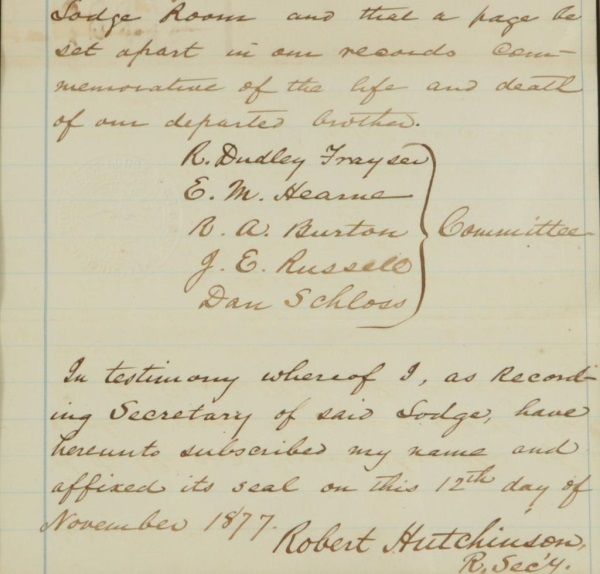 Lodge Room and that a page be
set apart in our records com-
memorative of the life and death
of our departed brother.
R. Dudley Frayser
E. M. Hearne
R. A. Burton
J. E. Russell
Dan Schloss
Committee
In testimony whereof I, as Record-
ing Secretary of said Lodge, have
hereunto subscribed my name and
affixed its seal on this 12th day of
November 1877.
Robert Hutchinson,
R. Sec'y.